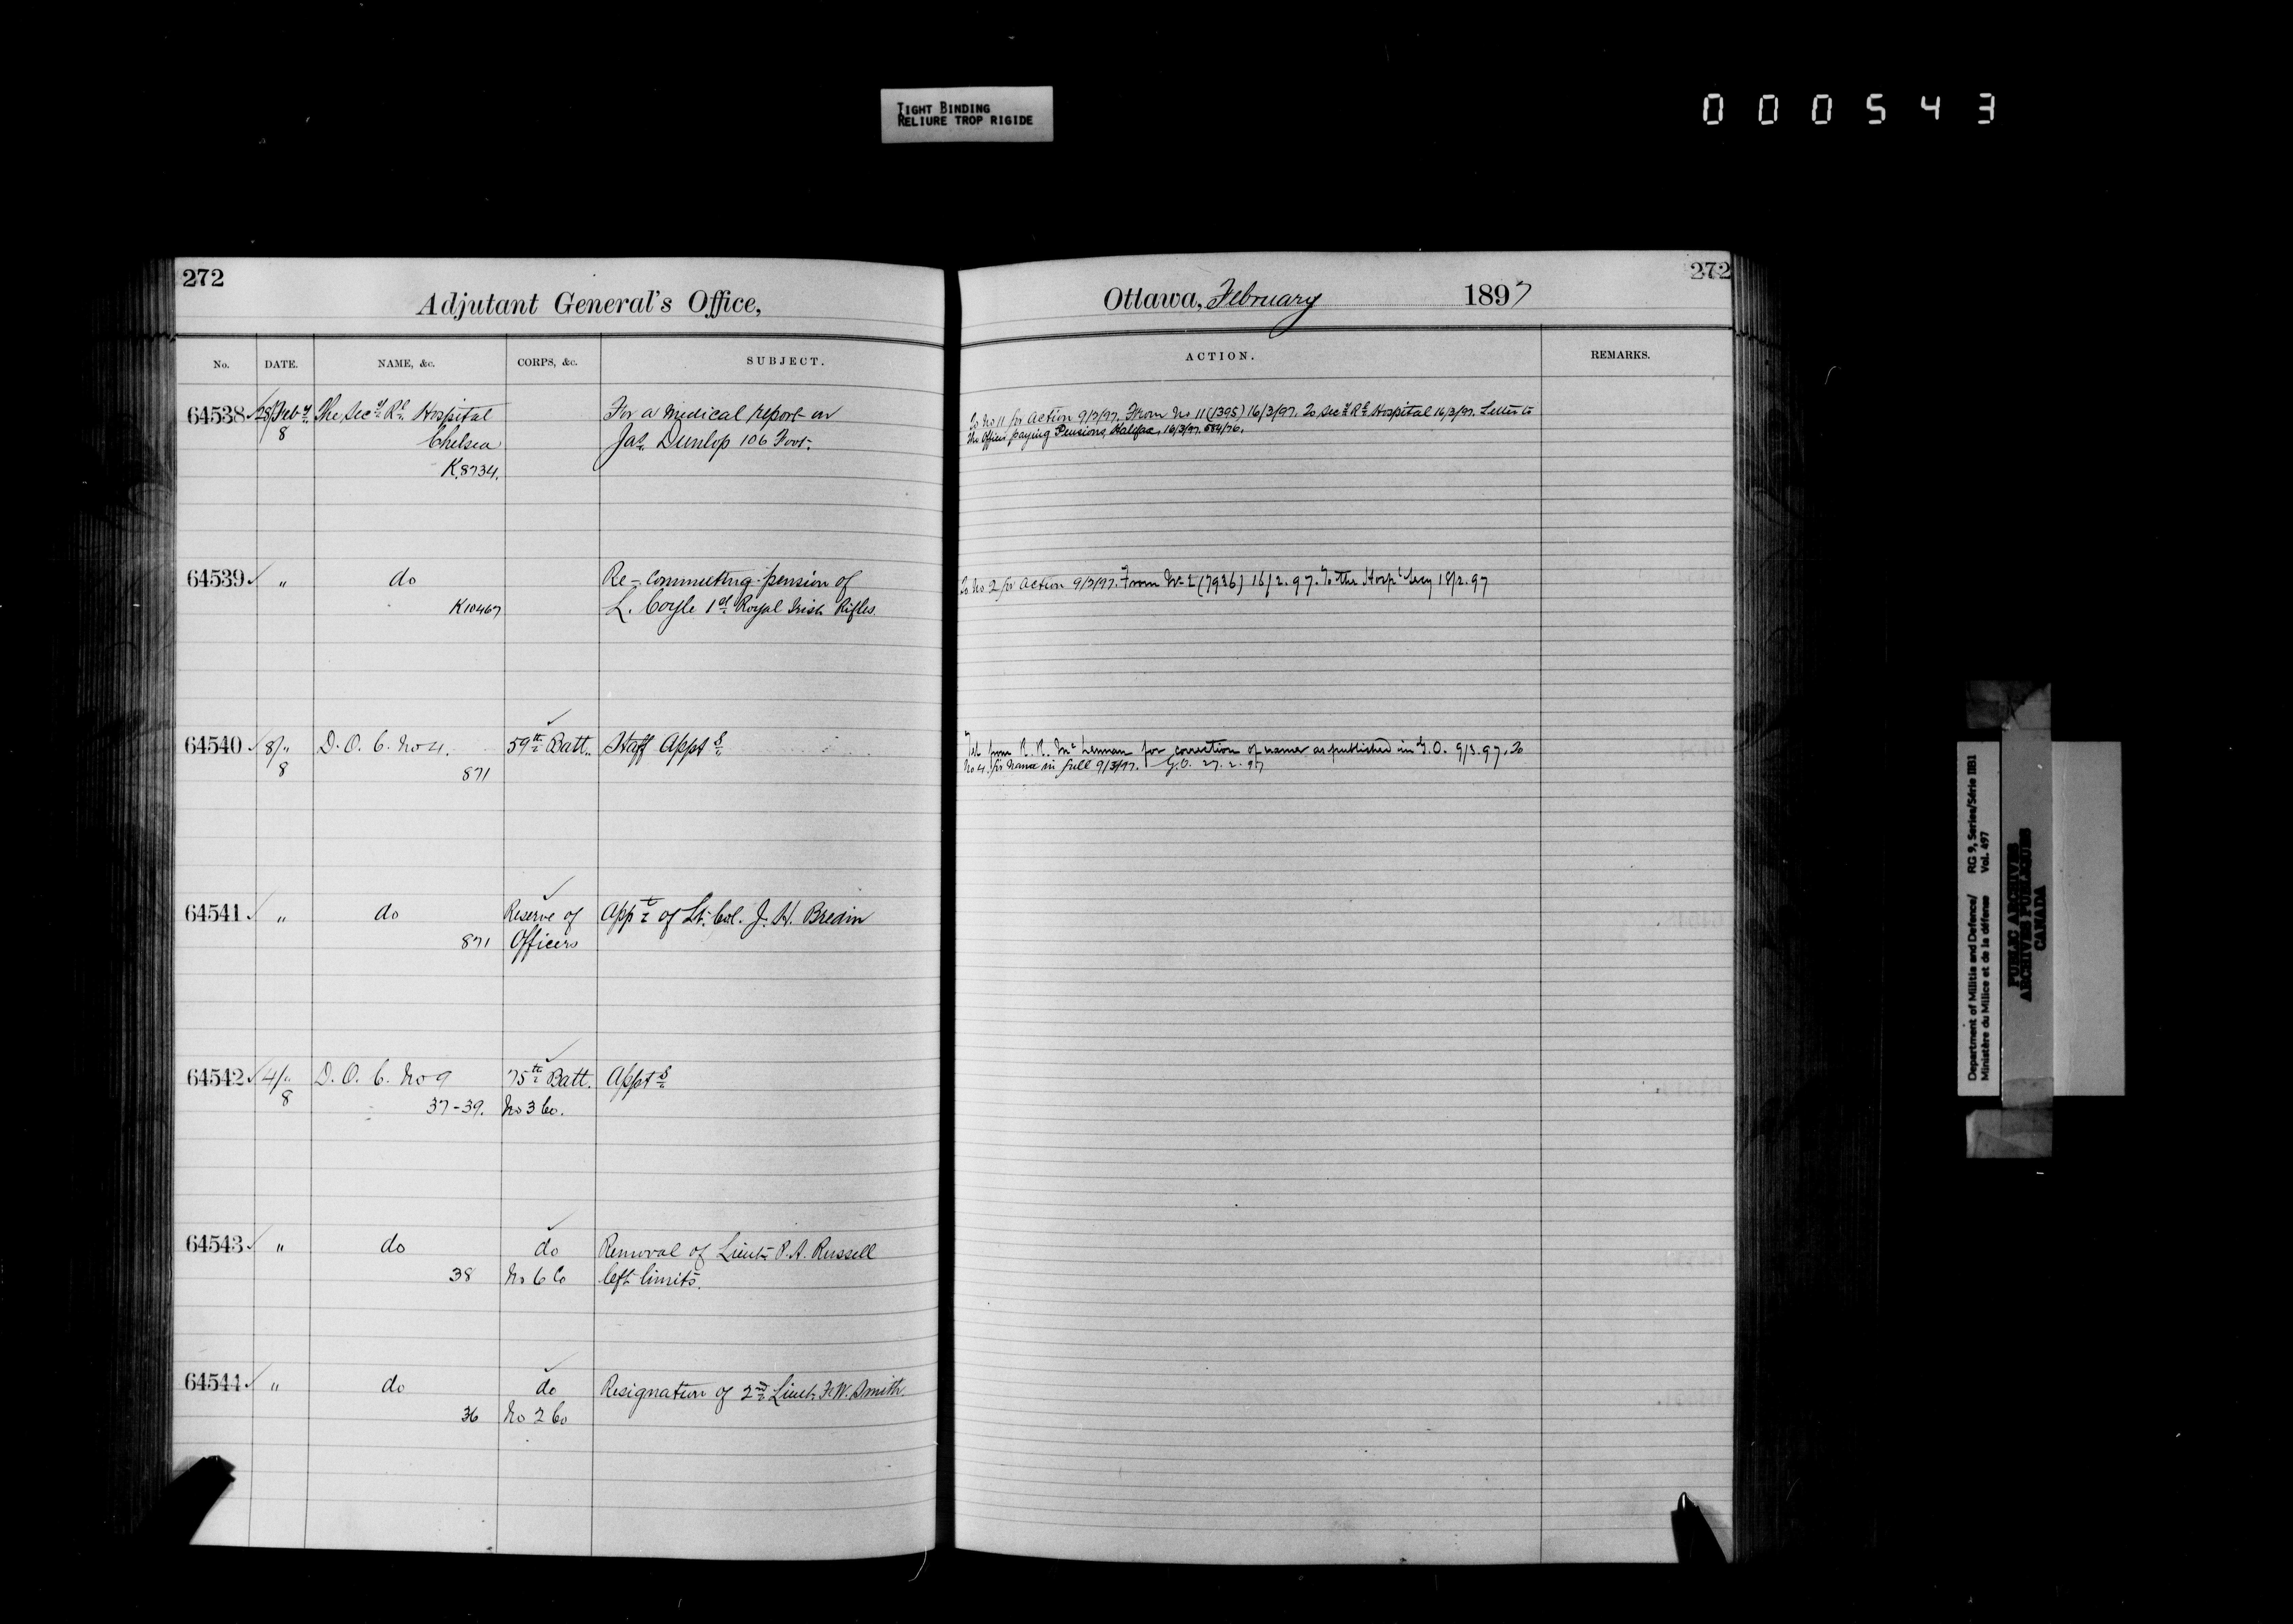 TIGHT BINDING
RELIURE TROP RIGIDE
000543
272
Adjutant General's Office,
No. DATE. NAME, &c. CORPS, &c. SUBJECT.
64538 28/Feby The Secy Rl Hospital For a medical report on
8 Chelsea Jas. Dunlop 106 Foot.
K8734.
64539 " do Re-commuting pension of
K10467 L. Coyle 1st Royal Irish Rifles.
64540 8/" D.O.C. No 4. 59th Batt. Staff Appts
8 871
64541 " do Reserve of Appt of Lt. Col. J. H. Bredin
871 Officers
64542 4/" D.O.C. No 9 75th Batt. Appts
8 37-39. No 3 Co.
64543 " do do Removal of Lieut. P.A. Russell
38 No 6 Co left limits.
64544 " do do Resignation of 2nd Lieut. F.W. Smith.
36 No 2 Co
272
Ottawa, February 1897
ACTION. REMARKS.
To No 11 for action 9/2/97. From No 11 (1395) 16/3/97. To Secy Rl Hospital 16/3/97. Letter to
the Officer paying Pensions, Halifax, 16/3/97.
To No 2 for action 9/2/97. From No 2 (7936) 16/2.97. To the Hospl Secy 18/2.97
from R. R. Mc Lennan for correction of names as published in G.O. 9/3.97. To
No 4. for name in full 9/3/97. G.O. 27.2.97
Department of Militia and Defence/ RG 9, Series/Série IIB1
Ministère du Milice et de la défense Vol. 497
PUBLIC ARCHIVES
ARCHIVES PUBLIQUES
CANADA